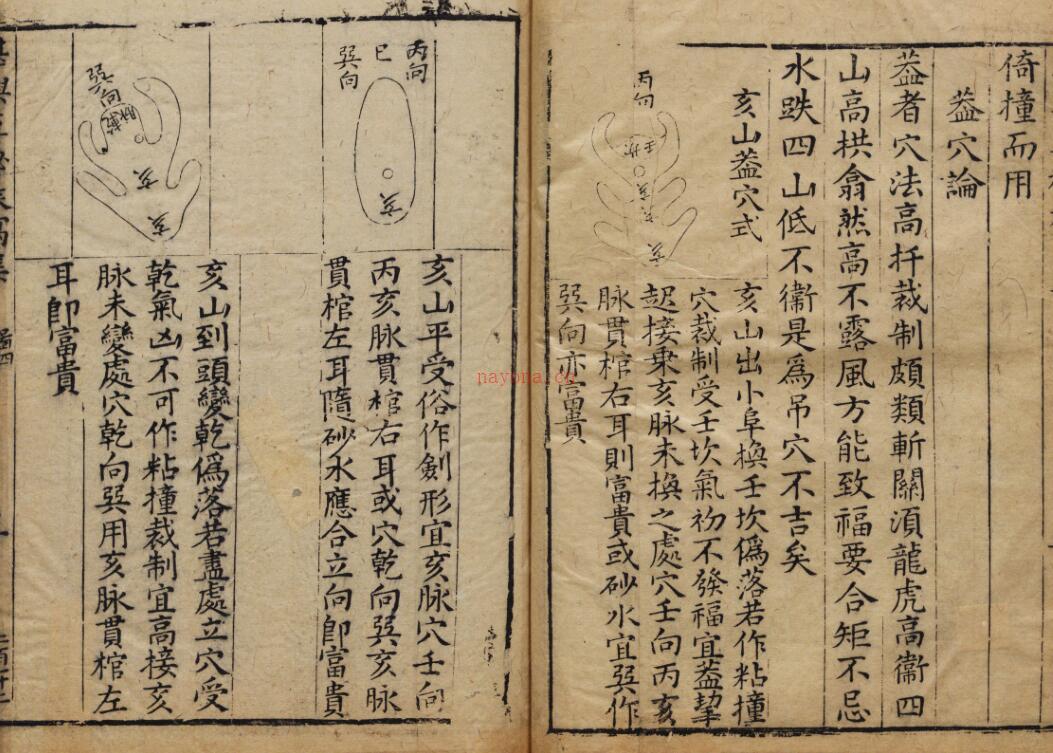 倚撞而用
葢穴論
葢者穴法高扦裁制頗類斬關湏龍虎高衞四
山高拱翕然高不露風方能致福要合矩不忌
水跌四山低不衞是爲吊穴不吉矣
亥山葢穴式
丙向
壬坎
亥
亥
亥
亥山出小阜換壬坎僞落若作粘撞
穴裁制受壬坎氣初不發福宜葢挈
起接乘亥脉未換之處穴壬向丙亥
脉貫棺右耳則富貴或砂水宜巽作
巽向亦富貴
丙向
巳
巽向
亥
亥山平受俗作劍形宜亥脉穴壬向
丙亥脉貫棺右耳或穴乾向巽亥脉
貫棺左耳隨砂水應合立向即富貴
巽向
亥
亥
亥山到頭變乾僞落若盡處立穴受
乾氣凶不可作粘撞裁制宜高接亥
脉未變處穴乾向巽用亥脉貫棺左
耳即富貴
nayona.cn